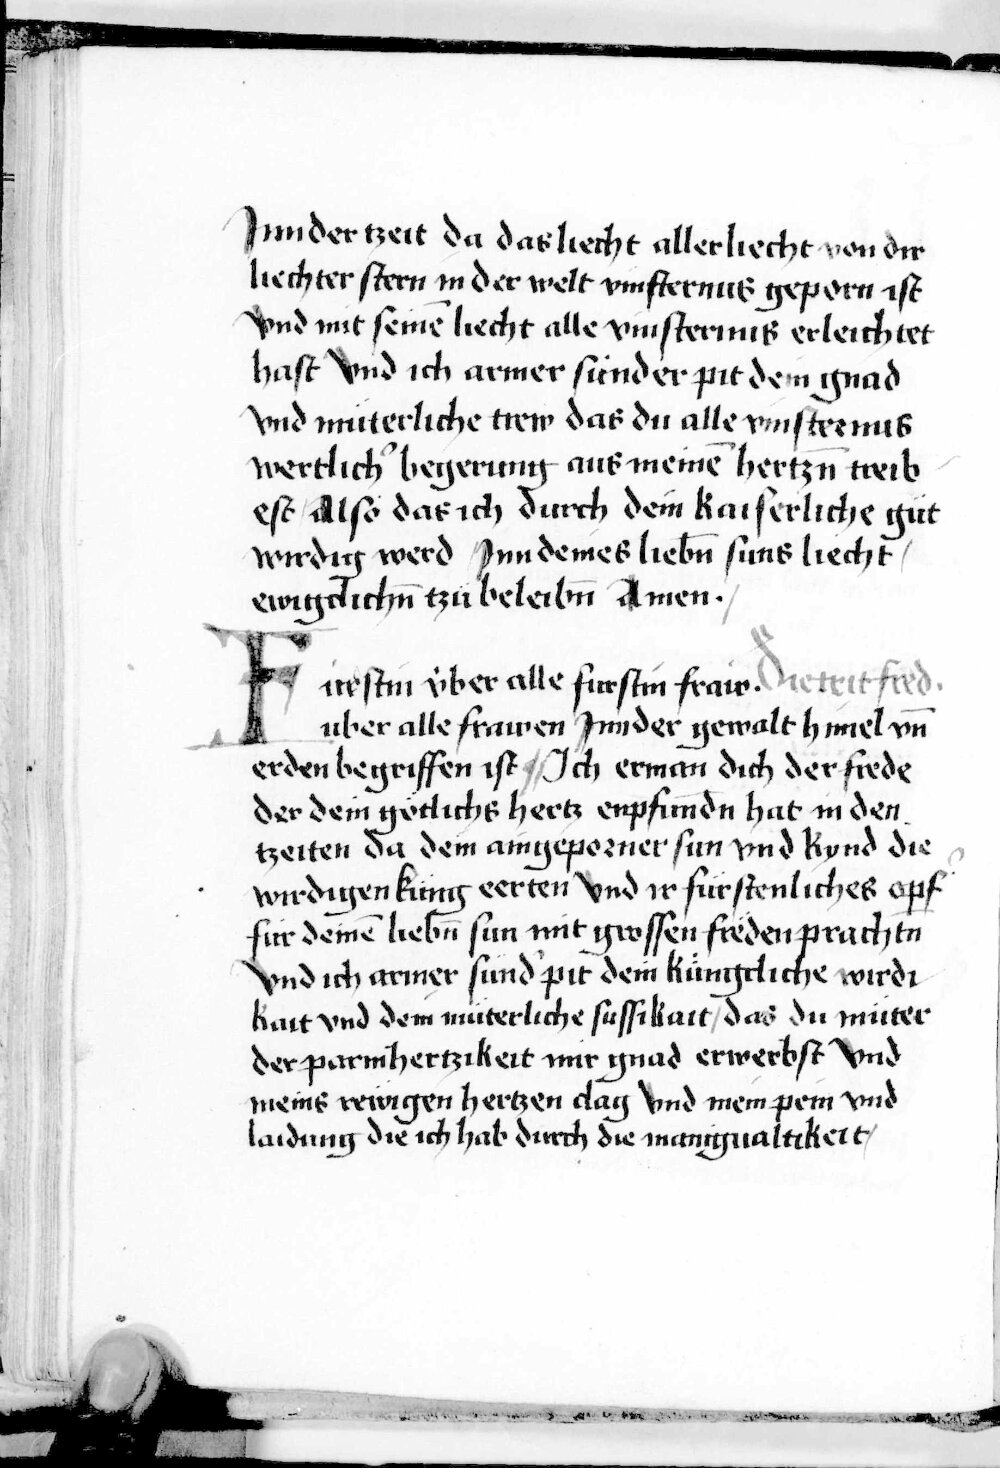 Inn der tzeit da das liecht aller liecht von dir
liechter stern in der welt vinsternus geporn ist
vnd mit seinē liecht alle vinsternus erleichtet
hast Vnd ich armer sünder pit dein gnad
vnd müterliche trew das du alle vinsternus
wertlich' begerung aus meinē hertzn̄ treib
est / Also das ich durch dein kaiserliche güt
wirdig werd Inn deines liebn̄ suns liecht /
ewigclichn̄ tzü beleibn̄ Amen . /
Fürstin über alle fürstin fraw . Die trit fred .
uber alle frawen Inn der gewalt himel vn̄
erden begriffen ist // Ich erman dich der frede
der dein götlichs hertz enpfundn hat in den
tzeiten da dein aingeporner sun vnd kynd die
wirdigen küng eerten Vnd ir fürstenliches opf'
für deinē liebn̄ sun mit grossen fröden prachtn̄
Vnd ich armer sünd' pit dein künigcliche wirdi
kait vnd dein müterliche süssikait / das du müter
der parmhertzikeit mir gnad erwerbst Vnd
meins rewigen hertzen clag Vnd mein pein vnd
laidung die ich hab durch die manigualtikeit /